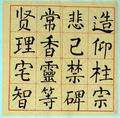 造仰柱宗
悲己禁碑
常香靈等
賢理宅智